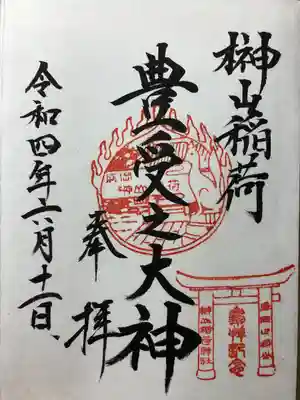 榊山稲荷
豊受之大神
奉拝
令和四年六月十一日